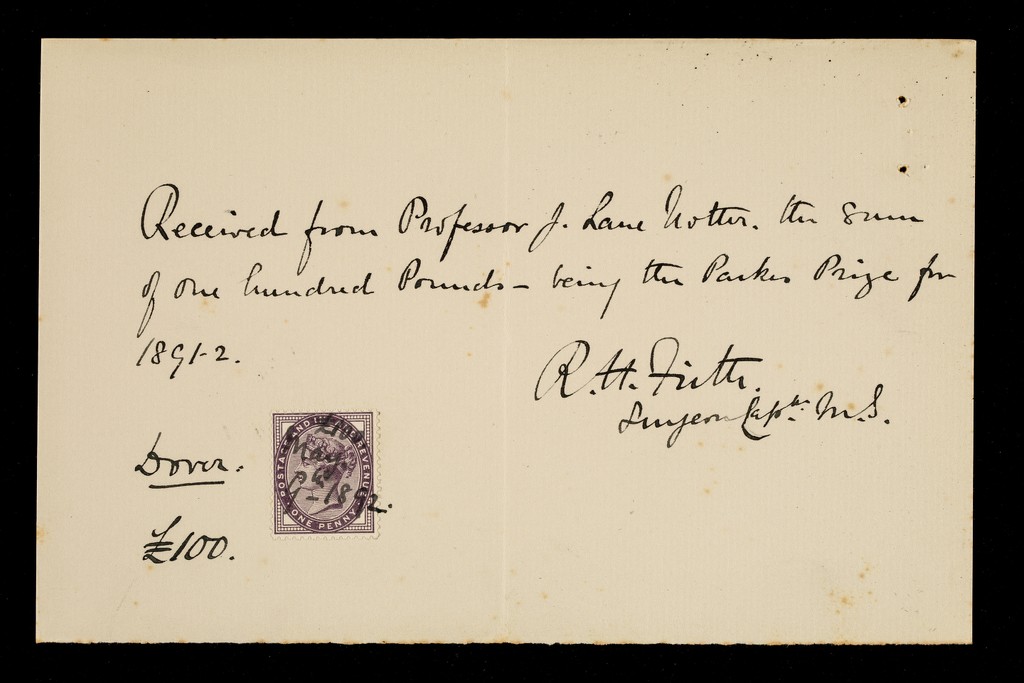 Received from Professor J. Lane Notter. the Sum
of one hundred Pounds – being the Parkes Prize for
1891-2.
R. H. Firth.
Surgeon Capt. M.S.
Dover.
POSTAGE AND INLAND REVENUE
ONE PENNY
May
1892.
£100.